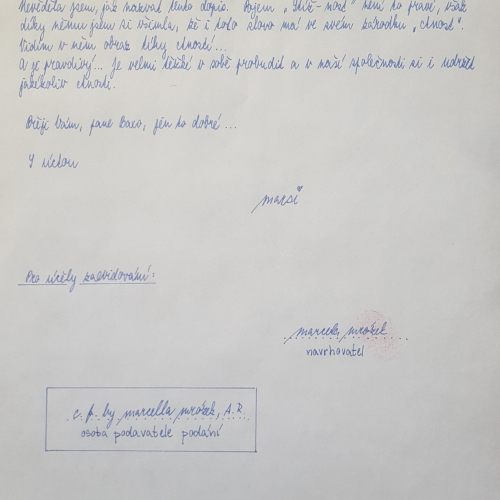 Nevěděla jsem, jak nazvat tento dopis. Pojem „ -nost" není to pravé, však
díky němu jsem si všimla, že i toto slovo má ve svém zárodku „ctnost".
Vidím v něm obraz díky ctnosti...
A je pravdivý... Je velmi těžké v sobě probudit a v naší společnosti si i udržet
jakékoliv ctnosti.
Přeji Vám, pane , jen to dobré...
S úctou
marsi
Pro účely zaevidování:
marcela mrózek
navrhovatel
c. p. by marcella mrózek, A.R.
osoba podavatele podání